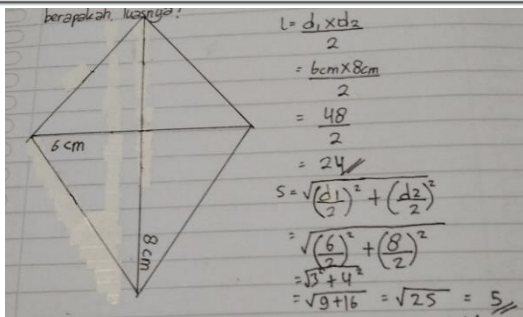 berapakah luasnya?
6 cm
8 cm
L = d₁ x d₂ / 2
= 6cm x 8cm / 2
= 48 / 2
= 24 //
S = √(d1/2)² + (d2/2)²
= √(6/2)² + (8/2)²
= √3² + 4²
= √9+16 = √25 = 5 //